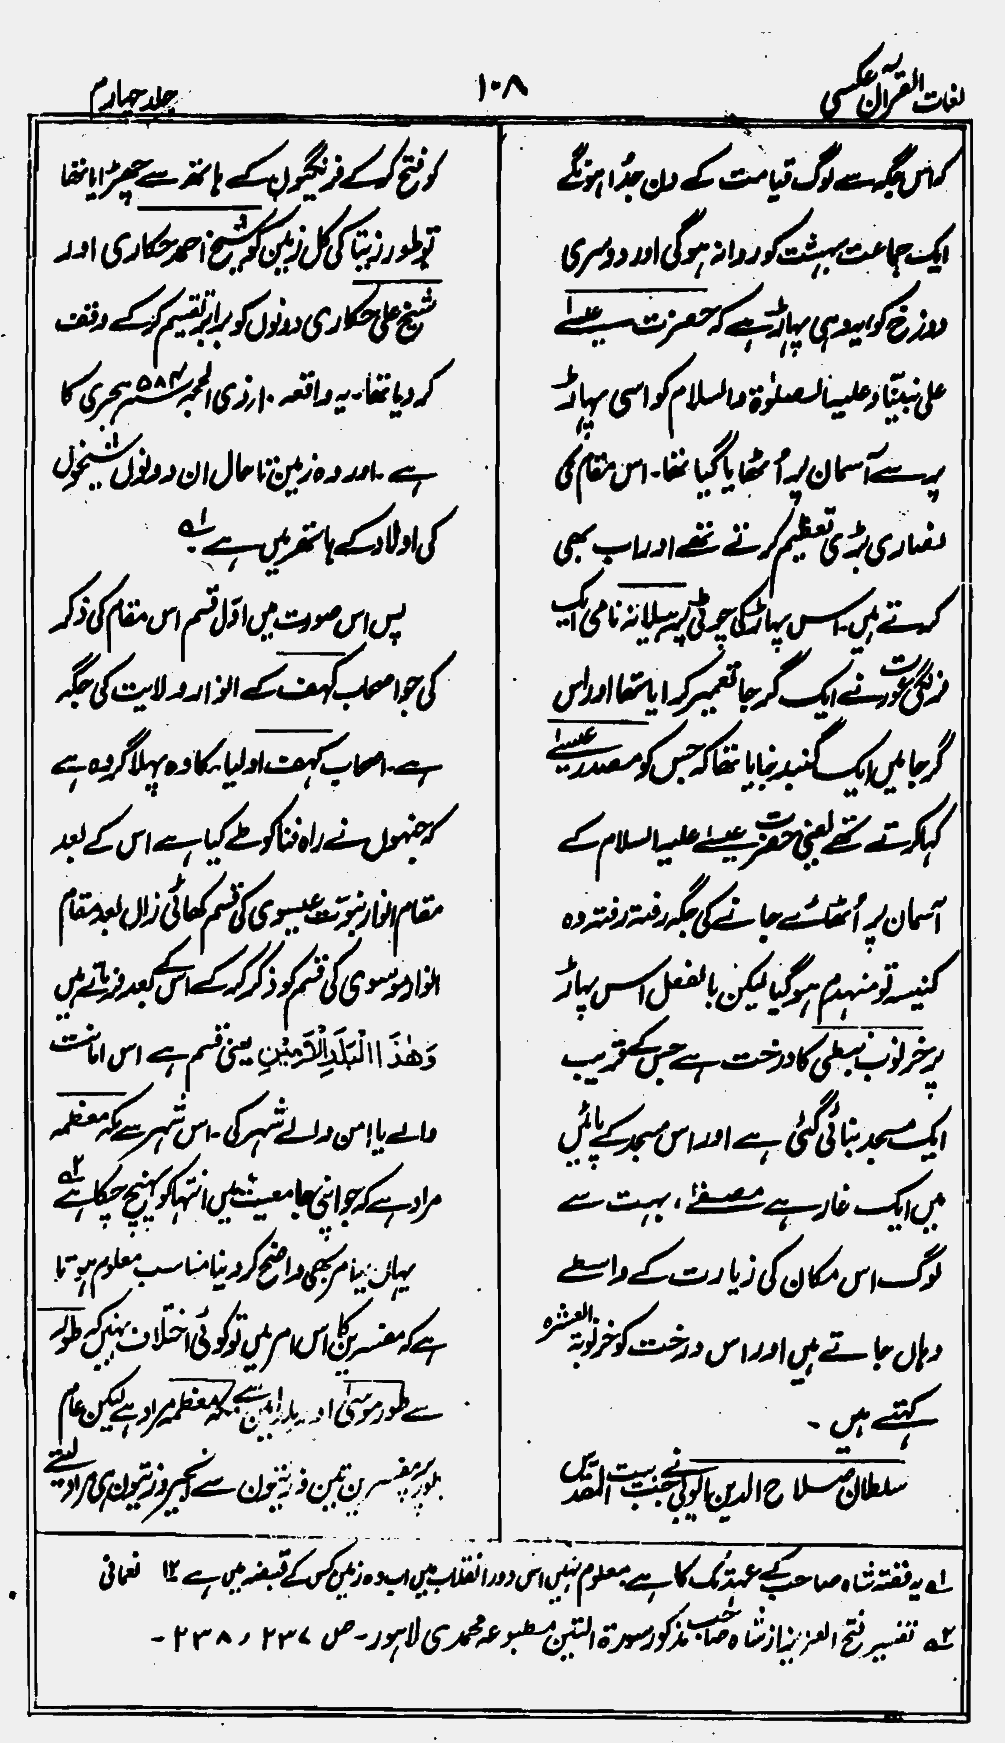 لغات القرآن عکسی
۱۰۸
جلد چہارم
کہ اس جگہ سے لوگ قیامت کے دن جدا ہونگے
ایک جماعت بہشت کو روانہ ہوگی اور دوسری
دوزخ کو، یہ وہی پہاڑ ہے کہ حضرت سیدنا عیسےٰ
علی نبینا و علیہ الصلوٰۃ والسلام کو اسی پہاڑ
پر سے آسمان پر اُٹھایا گیا تھا۔ اس مقام کی
نصاریٰ بڑی تعظیم کرتے تھے اور اب بھی
کرتے ہیں۔ اس پہاڑ کی چوٹی پر ہیلانہ نامی ایک
فرنگی عورت نے ایک گرجا تعمیر کرایا تھا اور اس
گرجا میں ایک گنبد بنایا تھا کہ جس کو مصعد عیسےٰ
کہا کرتے تھے یعنی حضرت عیسےٰ علیہ السلام کے
آسمان پر اُٹھائے جانے کی جگہ رفتہ رفتہ وہ
کنیسہ تو منہدم ہوگیا لیکن بالفعل اس پہاڑ
پر خرنوب نبطی کا درخت ہے جس کے قریب
ایک مسجد بنائی گئی ہے اور اس مسجد کے پائیں
میں ایک غار ہے مصفےٰ، بہت سے
لوگ اس مکان کی زیارت کے واسطے
وہاں جاتے ہیں اور اس درخت کو خرنوبۃ العشرہ
کہتے ہیں۔
سلطان صلاح الدین ایوبی نے جب بیت المقدس
کو فتح کر کے فرنگیوں کے ہاتھ سے چھڑایا تھا
تو طور زیتا کی کل زمین کو شیخ احمد حکاری اور
شیخ علی حکاری دونوں کو برابر تقسیم کر کے وقف
کر دیا تھا۔ یہ واقعہ ۱۰ ذی الحجہ ۵۸۴ ہجری کا
ہے۔ اور وہ زمین تا حال ان دونوں شیخوں
کی اولاد کے ہاتھ میں ہے ۱؎
پس اس صورت میں اوّل قسم اس مقام کی ذکر
کی جو اصحاب کہف کے انوار ولایت کی جگہ
ہے۔ اصحاب کہف اولیا کا وہ پہلا گروہ ہے
کہ جنہوں نے راہ فنا کو طے کیا ہے اس کے بعد
مقام انوار نبوت عیسوی کی قسم کھائی زاں بعد مقام
انوار موسوی کی قسم کو ذکر کر کے اس کے بعد فرماتے ہیں
وَهٰذَا الْبَلَدِ الْاَمِیْنِ یعنی قسم ہے اس امانت
والے یا امن والے شہر کی۔ اس شہر سے مکہ معظمہ
مراد ہے کہ جو اپنی جامعیت میں انتہا کو پہنچ چکا ہے ۲؎
یہاں یہ امر بھی واضح کر دینا مناسب معلوم ہوتا
ہے کہ مفسرین کا اس امر میں تو کوئی اختلاف نہیں کہ طور
سے طور موسیٰ اور بلد امین سے مکہ معظمہ مراد ہے لیکن عام
طور پر مفسرین تین و زیتون سے انجیر و زیتون ہی مراد لیتے
۱؎ یہ قصہ شاہ صاحب کے عہد تک کا ہے معلوم نہیں اس دور انقلاب میں اب وہ زمین کس کے قبضہ میں ہے ۱۲ نعمانی
۲؎ تفسیر فتح العزیز از شاہ صاحب مذکور سورۃ التین مطبوعہ محمدی لاہور۔ ص ۲۳۷، ۲۳۸۔